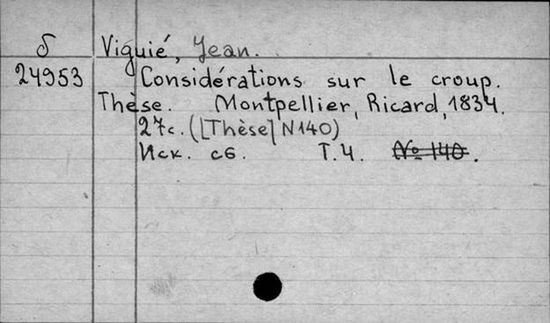 δ Viguié, Jean.
24953 Considérations sur le croup.
Thèse. Montpellier, Ricard, 1834.
27с. ([Thèse] N140)
Иск. сб. Т.4. № 140.